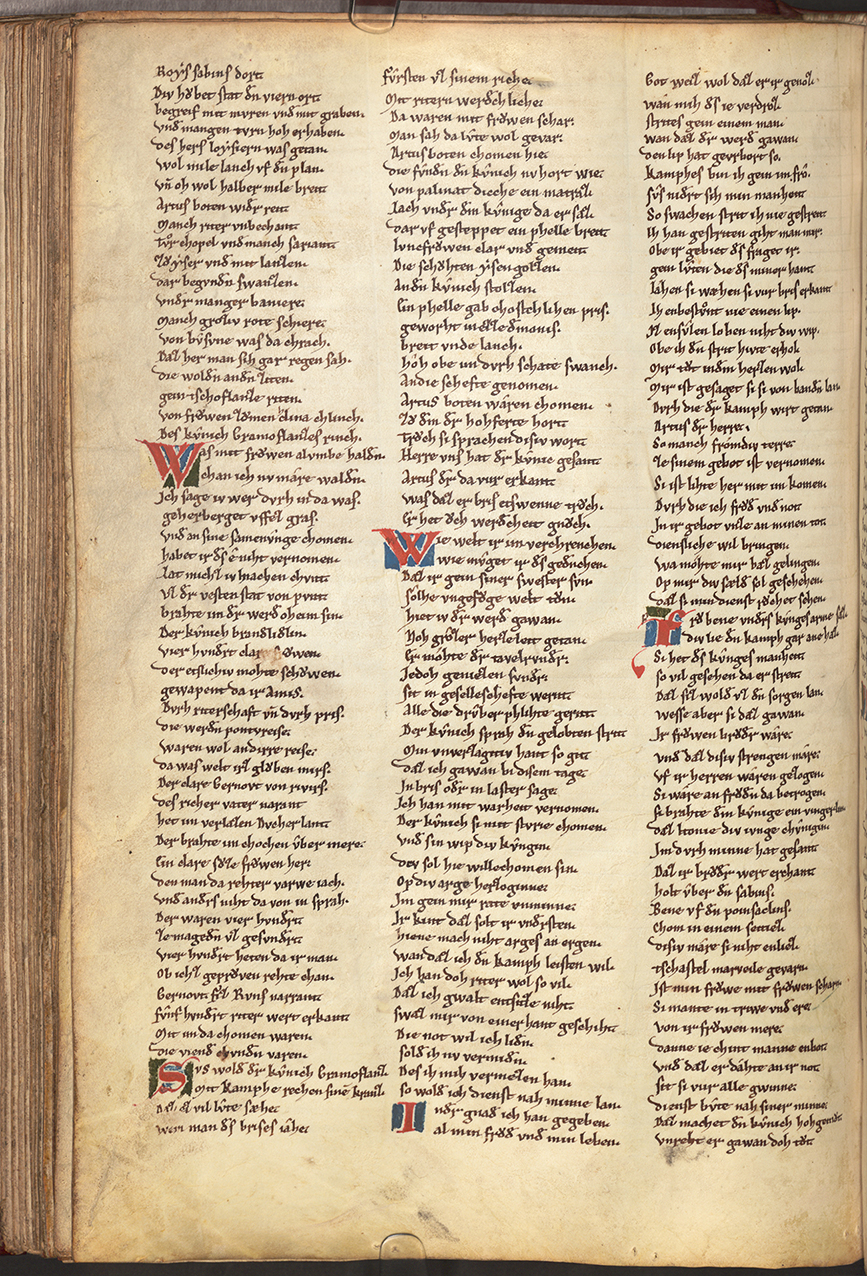 Roẏs sabins dort
Div hôbet stat den viern ort
begreif mit mvren vnd mit graben.
vnd mangen tvrn hoh erhaben.
des hers loyſiern was getan
wol mile lanch vf den plan
vn̄ oh wol halber mile breit
Artus boten wider reit
Manch riter vnbechant
Tvrchopel vnd manch ſariant
zeyſer vnd mit lanzen
dar begvnden ſwanzen
vnder manger baniere
Manch groziv rote ſchiere
von bvſvne was da chrach.
Daz her man ſih gar regen ſah.
die wolden an den ziten
gein tſchoflanze riten
von frôwen zômen clinga chlinch.
Des kvnich Gramoflanzes rinch.
Was mit frôwen al vmbe halden
chan ich nv mære walden
Ich ſage iv wer dvrh in da was.
geherberget vffez graſ.
vnd an ſine ſamenvnge chomen.
habet ir des ê niht vernomen.
Lat michz iv machen chvnt
vz der veſten ſtat von pvnt
brahte im der werd oheim ſin
Der kvnich brandlidelin
vier hvndert clare frôwen
der etſlichiv mohte ſchôwen
gewapent da ir Amis.
Dvrh riterſchaft vn̄ dvrh pris.
die werden ponttvreiſe
waren wol an dirre reiſe
da was welt irz glôben mirs.
Der clare bernovt von rivirs.
des richer vater narant
het im verlazen Vcherlant
Der brahte in chochen vber mere
ein clare ſôlc frôwen her
den man da rehter varwe iach.
vnd anders niht da von in ſprah.
Der waren vier hvndert
ze mageden vz geſvndert
vier hvndert heten da ir man
Ob ichz geprvven rehte chan
Bernovt fiz Rvns narrant
fvnf hvndert riter wert erkant
Mit im da chomen waren
die viend chvnden varen
Svs wold der kvnich Gramoflanz
mit kamphe rechen ſinen kranz
Daz ez vil lvte ſæhe
wem man des briſes iæhe
fvrſten vz ſinem riche
Mit ritern werdechliche
Da waren mit frôwen ſchar.
Man ſah da lvte wol gevar.
Artus boten chomen hie
die fvnden den kvnich nv hort wie
von palmat diche ein matraz
lach vnder dem kvnige da er ſaz
dar vf geſteppet ein phelle breit
Ivncfrowen clar vnd gemeit
Die ſchohten yſen golzen
An den kvnich ſtolzen
Ein phelle gab choſtchlihen pris.
geworht in eſidemonis.
breit vnde lanch.
hôh obe im dvrh ſchate ſwanch
An die ſchefte genomen
Artus boten wâren chomen
ze dem der hohferte hort
trôch ſi ſprachen diſiv wort
Herre vns hat der kvnic geſant
Artus der da vur erkant
was daz er bris etſwenne trôch.
Er het ôch werdcheit gnôch.
Wie welt ir im verchrenchen
wie mvget ir des gedenchen
Daz ir gein ſiner ſweſter ſvn
ſôlhe vngefôge welt tôn
hiet iv der werd gawan
Noh grôzer herzeleit getan.
Er môhte der tavelrvnder
Iedoh geniezen ſvnder
ſit in geſelleſchefte werint
Alle die drvber phlihte gerint
Der kvnich ſprah den gelobten ſtrit
Min vnverzagtiv hant ſo git
daz ich gawan bi diſem tage
In bris oder in laſter ſage
Ich han mit warheit vernomen
Der kvnich ſi mit ſtvrie chomen
vnd ſin wip div kvngin
dev ſol hie willechomen ſin
Op div arge herzoginne
Im gein mir rate vnminne
Ir kint daz ſolt ir vnderſten
hiene mach niht arges an ergen
wan daz ich den kamph leiſten wil
Ich han doh riter wol ſo vil
Daz ich gwalt entſitze niht
ſwaz mir von einer hant geſchiht
Die not wil ich liden
ſold ich nv vermiden
Des ich mih vermezzen han
ſo wold ich dienſt nah minne lan
In der gnad ich han gegeben
al min frôd vnd min leben
Got weiz wol daz er ir genôz
wan mich des ie verdroz
ſtrites gein einem man
wan daz der werd gawan
den lip hat gevrbort ſo.
kamphes bin ih gein im frô.
ſvs nidert ſih min manheit
So ſwachen ſtrit ih nie geſtreit
Ih han geſtriten giht man mir.
Obe ir gebiet des fraget ir.
gein lvten die des miner hant
Iahen ſi wæhen ſi vur bris erkant
Ih enbeſtvnt nie einen lip.
Ez enſvlen loben niht div wip.
Obe ih den ſtrit hivte erhol
Mir tôt in dem herzen wol
Mir iſt geſaget ſi ſi von banden lan
Dvrh die der kamph wirt getan
Artus der herre
So manch frômdiv terre
ze ſinem gebot iſt vernomen
Si iſt lihte her mit im komen
Dvrh die ich frôd vnd not
In ir gebot vnze an minen tot
dienſtliche wil bringen
wa môhte mir baz gelingen
Op mir div ſæld ſol geſchehen
daz ſi min dienſt rôchet ſehen
Frô bene vnders kvnges arme ſaz
div lie den kamph gar ane haz
Si het des kvnges manheit
ſo vil geſehen da er ſtreit
Daz ſiz wold vz den ſorgen lan
weſſe aber ſi daz gawan
Ir frôwen brôder wâre
vnd daz diſiv ſtrengen mære
vf ir herren wâren gezogen
Si wâre an frôden da betrogen
ſi brahte dem kvnige ein vingerlin
daz Itonie div ivnge chvnigin
Im dvrh minne hat geſant
Daz ir brôder wert erchant
holt vber den ſabins.
Bene vf dem poinſaclins.
Chom in einem ſeytiez
diſiv mære ſi niht enliez
tſchaſtel marvoile gevarn
Iſt min frôwe mit frôwen ſcharn
Si mante in triwe vnd ere
von ir frôwen mere
danne ie chint manne enbot
vnd daz er dæhte an ir not
ſit ſi vur alle gwinne
dienſt bvte nah ſiner minne
Daz machet den kvnich hohgemvt
vnreht er gawan doh tôt